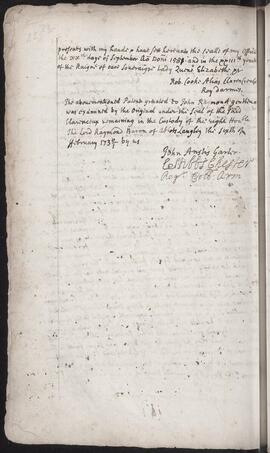 presents with my hande & have set hereunto the Seall of my Office
the xxxth daye of September Ao Doni 1589 and in the yeare
of the Raigne of our Soveraigne Lady Quene Elizabethe &c
Rob. Cooke Alias Clarencieulx
Roy Darmes.
The abovementioned Patent granted to John Raymont gentleman
was examined by the Original under the Seal of the said
Clarencieux remaining in the Custody of the right Honble
The Lord Raymond Baron of Abbots Langley the Sixth of
February 173 by us
John Anstis Garter
E Stibbs Chester
Regr. Coll. Arm